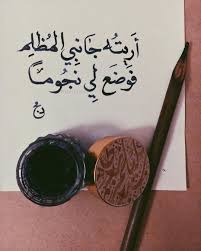 أريته جانبي المظلم
فوضع لي نجوماً